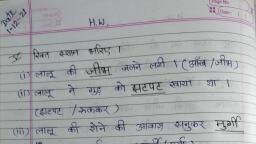 Date
1-12-21
H.W
V रिक्त स्थान भरिए ।
(i) लालू की जीभ जलने लगी । (आँख / जीभ)
(ii) लालू ने गुड़ को झटपट खाया था ।
(झटपट / रुककर)
(iii) लालू की रोने की आवाज़ सुनकर मुर्गी